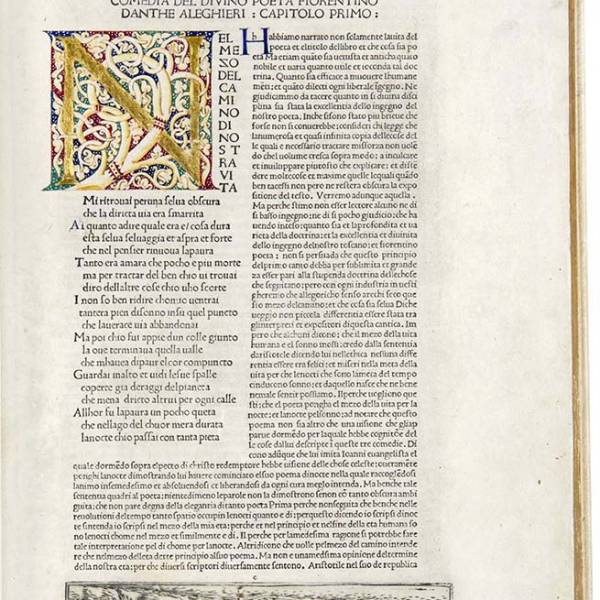 COMEDIA DEL DIVINO POETA FIORENTINO
DANTHE ALEGHIERI : CAPITOLO PRIMO :
NEL
MEZO
DEL
CAMI
NO DI
NOS
TRA
VITA
Mi ritrouai per una selua obscura
che la diricta uia era smarrita
Ai quanto adire quale era e/ cosa dura
esta selua seluaggia et aspra et forte
che nel pensier rinuoua la paura
Tanto era amara che pocho e piu morte
ma per tractar del ben chio ui trouai
diro dellaltre cose chio uho scorte
I non so ben ridire chomio uentrai
tantera pien disonno insu quel puncto
che lauerace uia abbandonai
Ma poi chio fui appie dun colle giunto
la oue terminaua quella ualle
che mhauea dipaur el cor compuncto
Guardai inalto et uidi lesue spalle
coperte gia deraggi delpianeta
che mena dricto altrui per ogni calle
Allhor fu lapaura un pocho queta
che nellago del chuor mera durata
lanocte chio passai con tanta pieta
Habbiamo narrato non solamente lauita del
poeta et eltitolo dellibro et che cosa sia po
eta Ma etiam quâto sia uetusta et anticha quâto
nobile et uaria quanto utile et ioconda tal doc
trina. Quanto sia efficace a muouere lhumane
mêti: et quâto dilecti ogni liberale īgegno. Ne
giudicammo da tacere quanto in si diuina disci
plina sia stata la excellentia dello ingegno del
nostro poeta. Inche sisono stato piu brieve che
forse non si conuerrebbe: consideri chi legge che
lanumerosa et quasi infinita copia dellecose del
le quali e necessario tractare misforza non uolê
do chel uolume cresca sopra modo: a inculcare
et inuiluppare piutosto che explicare: et diffê
dere moltecose et maxime quelle lequali quâdo
ben tacessi non pero ne restera obscura la expo
sitione del testo. Verremo adunque aquella.
Ma perche stimo non esser lectore alcuno ne di
si basso ingegno: ne di si pocho giudicio; che ha
uendo inteso: quanto sia et laprofondita et ua
rieta della doctrina: et la excellentia et diuinita
dello ingegno delnostro toscano: et fiorentino
poeta: non si persuada che questo principio
del primo canto debba per sublimita et grande
za esser pari alla stupenda doctrina dellechose
che seguitano: pero con ogni industria in uesti
gheremo che allegoricho senso arechi seco que
sto mezo delcamino: et che cosa sia selua Diche
ueggio non piccola differentia essere stata tra
glinterpreti et expositori di questa cantica. Im
pero che alchuni dicono: che il mezo della uita
humana e el sonno mossi: credo dalla sententia
daristotele dicendo lui nellethica nessuna diffe
rentia essere tra felici: et miseri nella meta della
uita per che lenocti che sono lameta del tempo
cinducono sonno: et daquello nasce che ne bene
nemale sentir possiamo. Ilperche uogliono que
sti: che el poeta pongha el mezo della uita per la
nocte: et lanocte pelsonno: ad notare che questo
poema non sia altro che una uisione che gliap
parue dormendo per laquale hebbe cognitiōe del
le cose dallui descripte ī queste tre comedie. Di
cono adũque che lui imita Ioanni euangelista el
quale dormêdo sopra elpecto di christo redemptore hebbe uisione delle chose celeste: oueramête
penghi lanocte dimostrando lui hauere cominciato elsuo poema dinocte nella quale raccoglêdosi
lanimo insemedesimo et absoluendosi et liberandosi da ogni cura meglo intenda. Ma benche tale
sententia quadri al poeta; nientedimeno leparole non la dimostrono senon cõ tanto obscura ambi
guita: che non pare degna della elegantia ditanto poeta Prima perche nonseguita che benche nelle
reuolutioni deltempo tanto spatio occupin lenocti quanto e di: perquesto dicendo io scripsi dinoc
te sintenda io scripsi nel mezo della mia eta; perche et nel principio et nelfine della eta humana so
no lenocti chome nel mezo et similmente e di. Il perche per lamedesima ragione si potrebbe fare
tale interpretation pel di chome per lanocte. Altri dicono che uolle pelmezo del camino intende
re che nelmezo delleta dette principio alsuo poema. Ma non e unamedesima opinione deltermine
della nostra eta; per che diuersi scriptori diuersamente sentono. Aristotile nel suo de republica